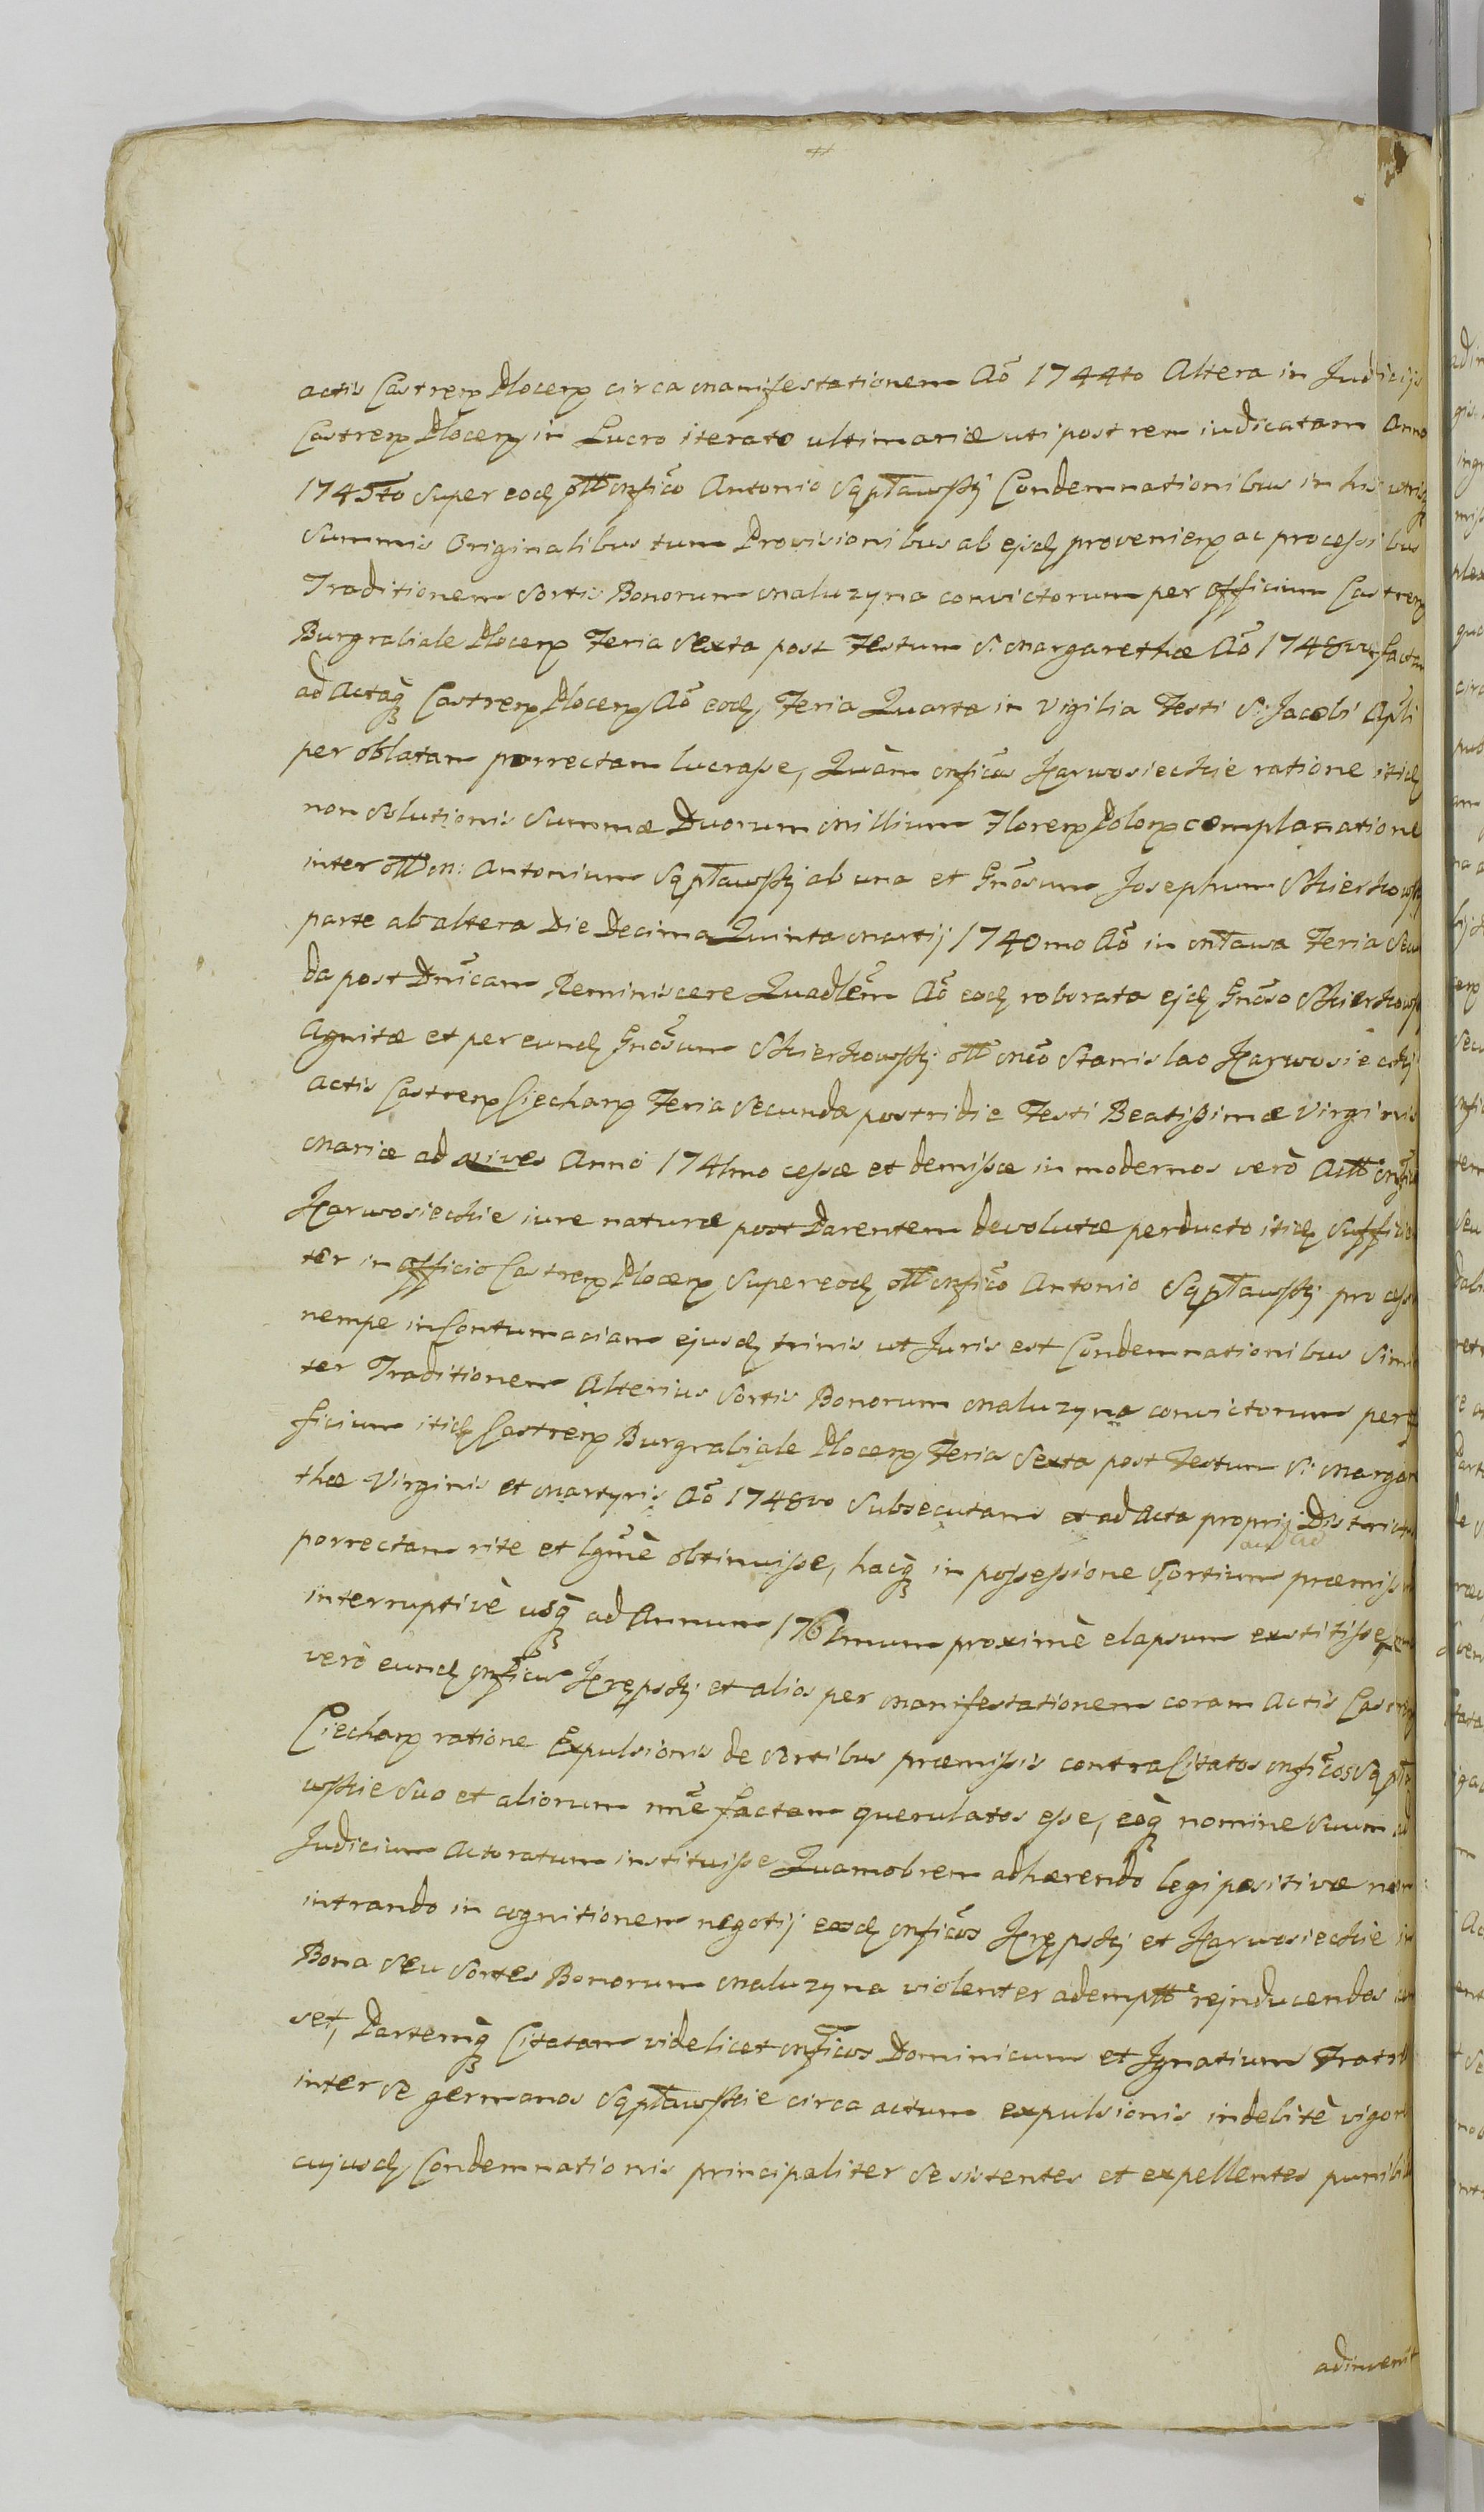 actis Castrens Plocens circa Manifestationem Aõ 1744to Altera in Judicijs
Castrens Plocens in Lucro iterato ultimariæ uti post rem iudicatam Anno
1745to super eod olim Mgfico Antonio Sęptławskj Condemnationibus in his utrisq
Summis Originalibus tum Provisionibus ab ejsd proveniens ac processibus
Traditionem Sortis Bonorum Maluzyna convictorum per officium Castrens
Burgrabiale Plocens Feria Sexta post Festum S: Margarethæ Aõ 1748vo factam
ad Actaq Castrens Plocens Aõ eod Feria Quarta in Vigilia Festi S: Jacobi Apli
per oblatam porrectam lucrasse, Quàm Mgficos Karwosieckie ratione itid
non Solutionis Summæ Duorum Millium Florens Polons complanatione
inter olim M: Antonium Sęptławskj ab una et Gnõsum Josephum Skierkowskj
parte ab altera Die Decima Quinta Martij 1740mo Aõ in Mława Feria Secun
da post Dnicam Reminiscere Quadlem Aõ eod roborata ejd Gnõso Skierkowskj
Agnitæ et per eund Gnõsum Skierkowskj olim Mco Stanislao Karwosieckj
Actis Castrens Ciechans Feria Secunda postridie Festi Beatissimæ Virginis
Mariæ ad Nives Anno 1741mo cessæ et demissæ in modernos verò Actt Mgficos
Karwosieckie iure naturæ post Parentem devolutæ perducto itid sufficien
ter in officio Castrens Plocens super eod olim Mgfico Antonio Sęptławskj process
nempe in Contumaciam ejusd trinis ut Juris est Condemnationibus Simi
ter Traditionem Alterius Sortis Bonorum Maluzyna convictorum per of
ficium itid Castrens Burgrabiale Plocens Feria Sexta post Festum S: Margare
thæ Virginis et Martyris Aõ 1748vo Subsecutam et ad Acta proprij Districtus
porrectam rite et lgmè obtinuisse, hacq in possessione Sortium præmiss
interruptivè usq ad Annum 1761mum proximè elapsum exstitisse,
verò eund Mgficum Krępskj et alios per Manifestationem coram Actis Castrens
Ciechans ratione Expulsionis de Sortibus præmissis contra Citatos Mgficos Sęptła
wskie Suo et aliorum nme factam querulatos esse, eoq nomine Suum ad
Judicium Actoratum instituisse Quamobrem adhærendo legi positivæ non
intrando in cognitionem negotij eosd Mgficos Krępskj et Karwosieckie in
Bona Seu Sortes Bonorum Maluzyna violenter adempt rejnducendos cen
set, Partemq Citatam videlicet Mgficos Dominicum et Jgnatium Fratres
inter Se germanos Sęptławskie circa actum expulsionis indebitè vigore
cujusd Condemnationis principaliter Se sistentes et expellentes punibil
adinvenit